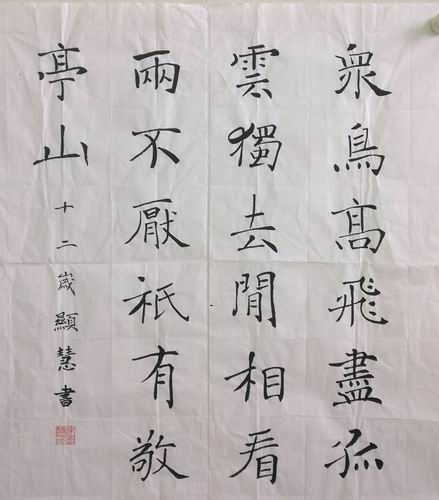 眾鳥髙飛盡孤
雲獨去閒相看
兩不厭祇有敬
亭山
十二歲顯慧書